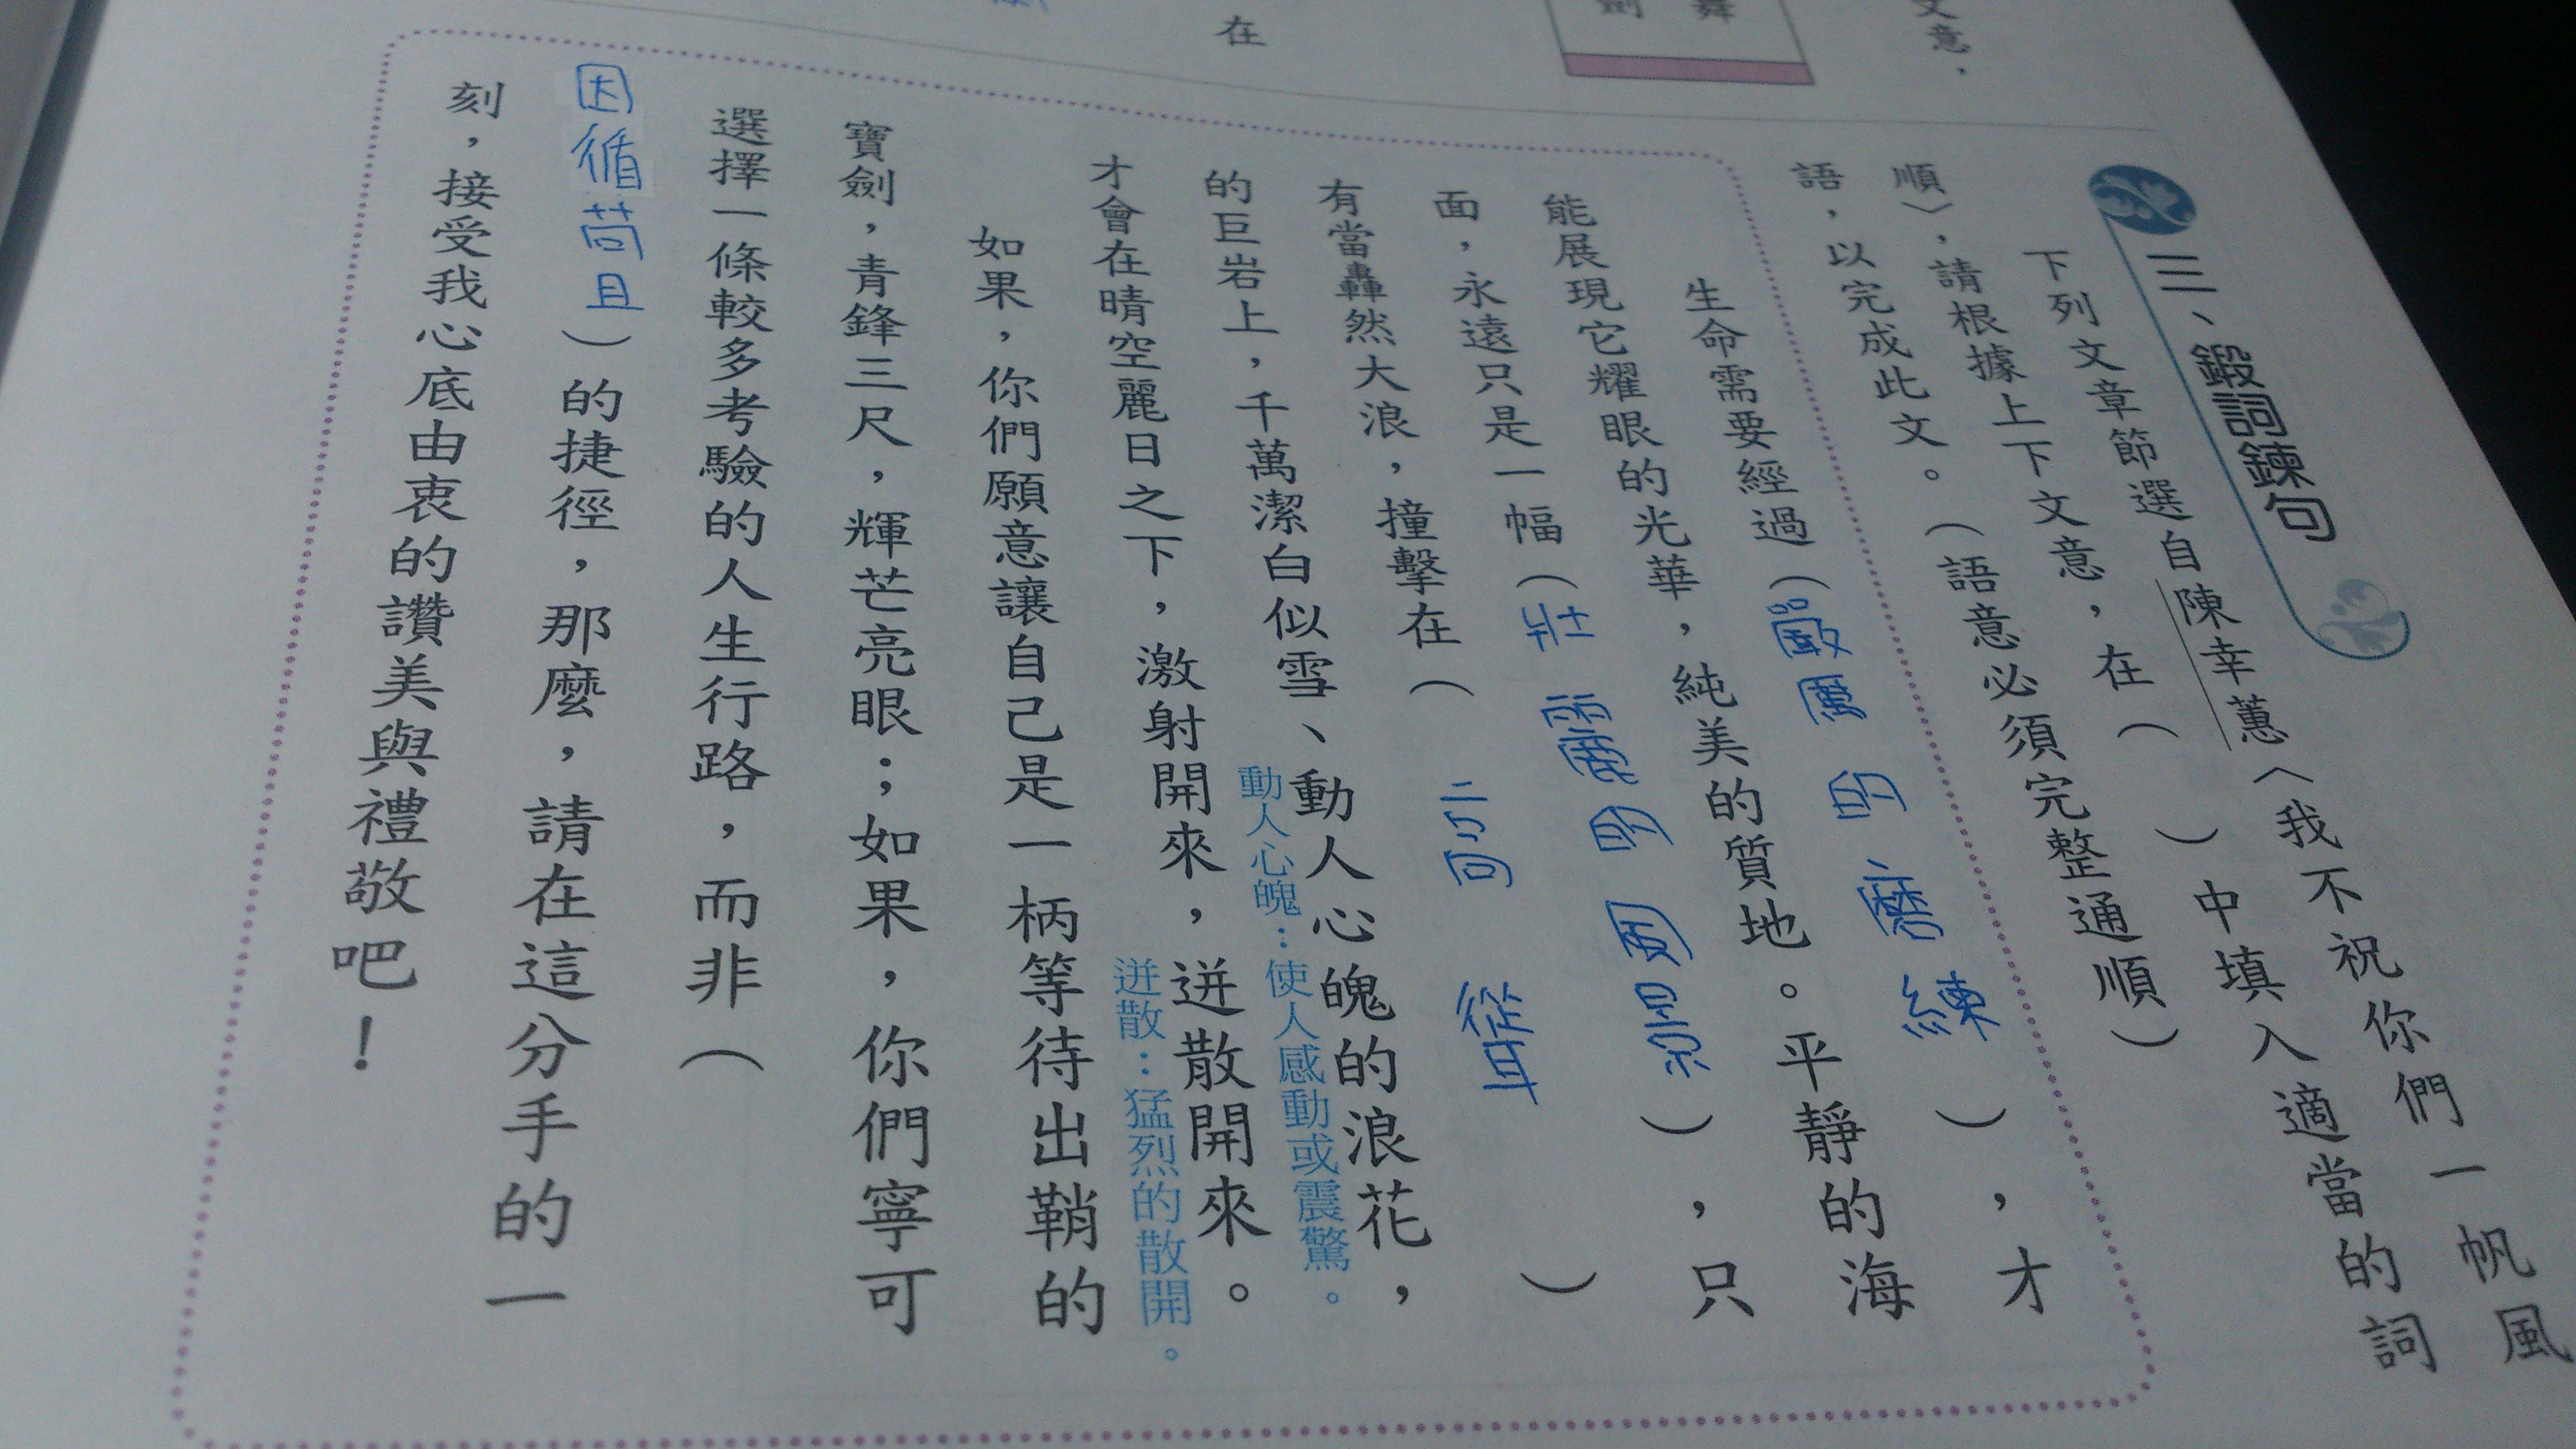 文意，
舞
劍
在
三、鍛詞鍊句
下列文章節選自陳幸蕙〈我不祝你們一帆風
順〉，請根據上下文意，在（　）中填入適當的詞
語，以完成此文。（語意必須完整通順）
生命需要經過（嚴厲的磨練），才
能展現它耀眼的光華，純美的質地。平靜的海
面，永遠只是一幅（壯麗的圖景），只
有當轟然大浪，撞擊在（高聳）
的巨岩上，千萬潔白似雪、動人心魄的浪花，
動人心魄：使人感動或震驚。
才會在晴空麗日之下，激射開來，迸散開來。
迸散：猛烈的散開。
如果，你們願意讓自己是一柄等待出鞘的
寶劍，青鋒三尺，輝芒亮眼；如果，你們寧可
選擇一條較多考驗的人生行路，而非（
因循苟且）的捷徑，那麼，請在這分手的一
刻，接受我心底由衷的讚美與禮敬吧！